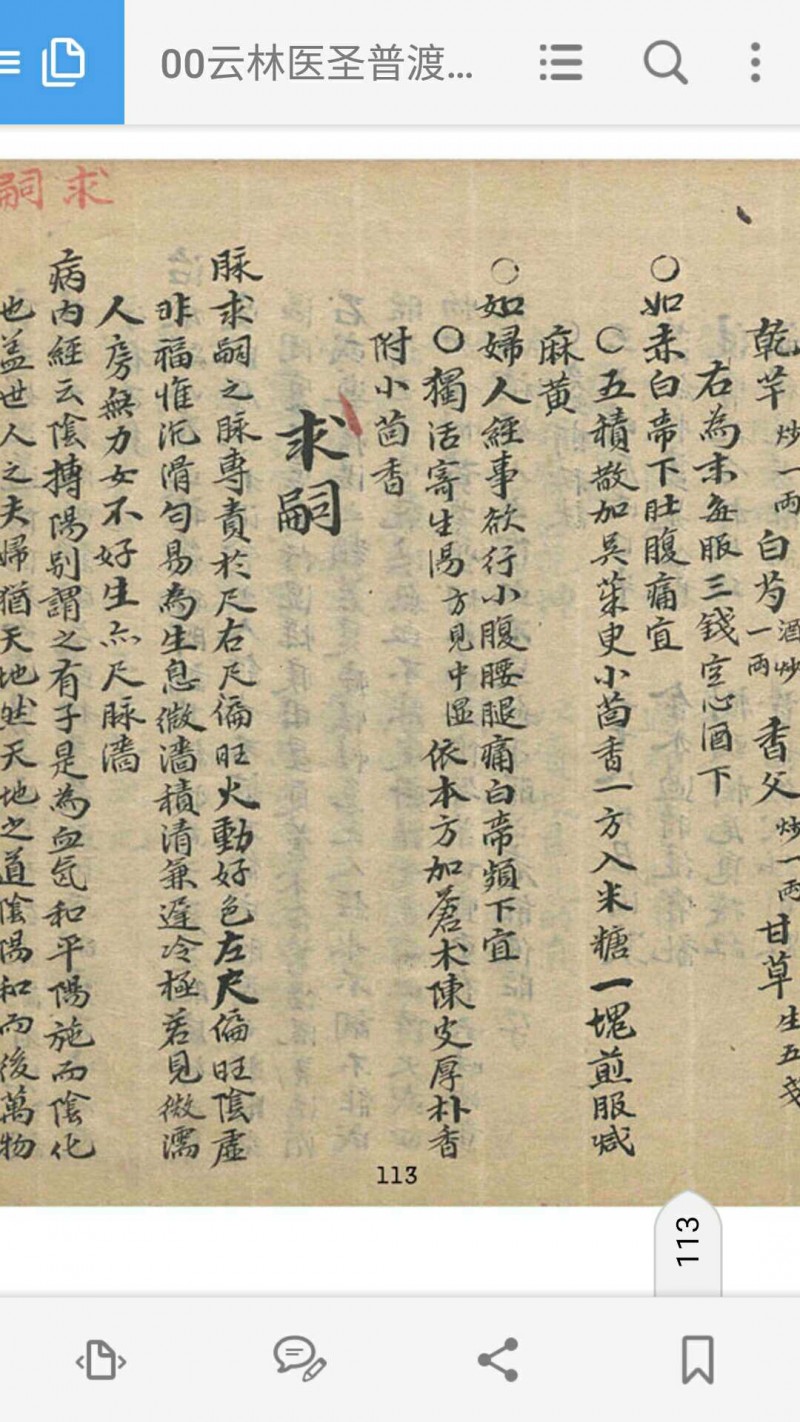 00云林医圣普渡...
嗣求
乾芊炒一両白芍酒炒一両香父炒一両甘草生五戔
右為末每服三錢空心酒下
○如赤白帶下肚腹痛宜
○五積散加吳茱萸小茴香一方入米糖一塊煎服减
麻黄
○如婦人經事欲行小腹腰腿痛白帶頻下宜
○獨活寄生湯方見中湿依本方加蒼术陳皮厚朴香
附小茴香
求嗣
脉求嗣之脉專責於尺右尺偏旺火動好色左尺偏旺陰虛
非福惟沉滑匀易為生息微濇積清兼遲冷極若見微濡
人房無力女不好生亦尺脉濇
病内經云陰摶陽别謂之有子是為血氣和平陽施而陰化
也盖世人之夫婦猶天地然天地之道陰陽和而後萬物
113
113